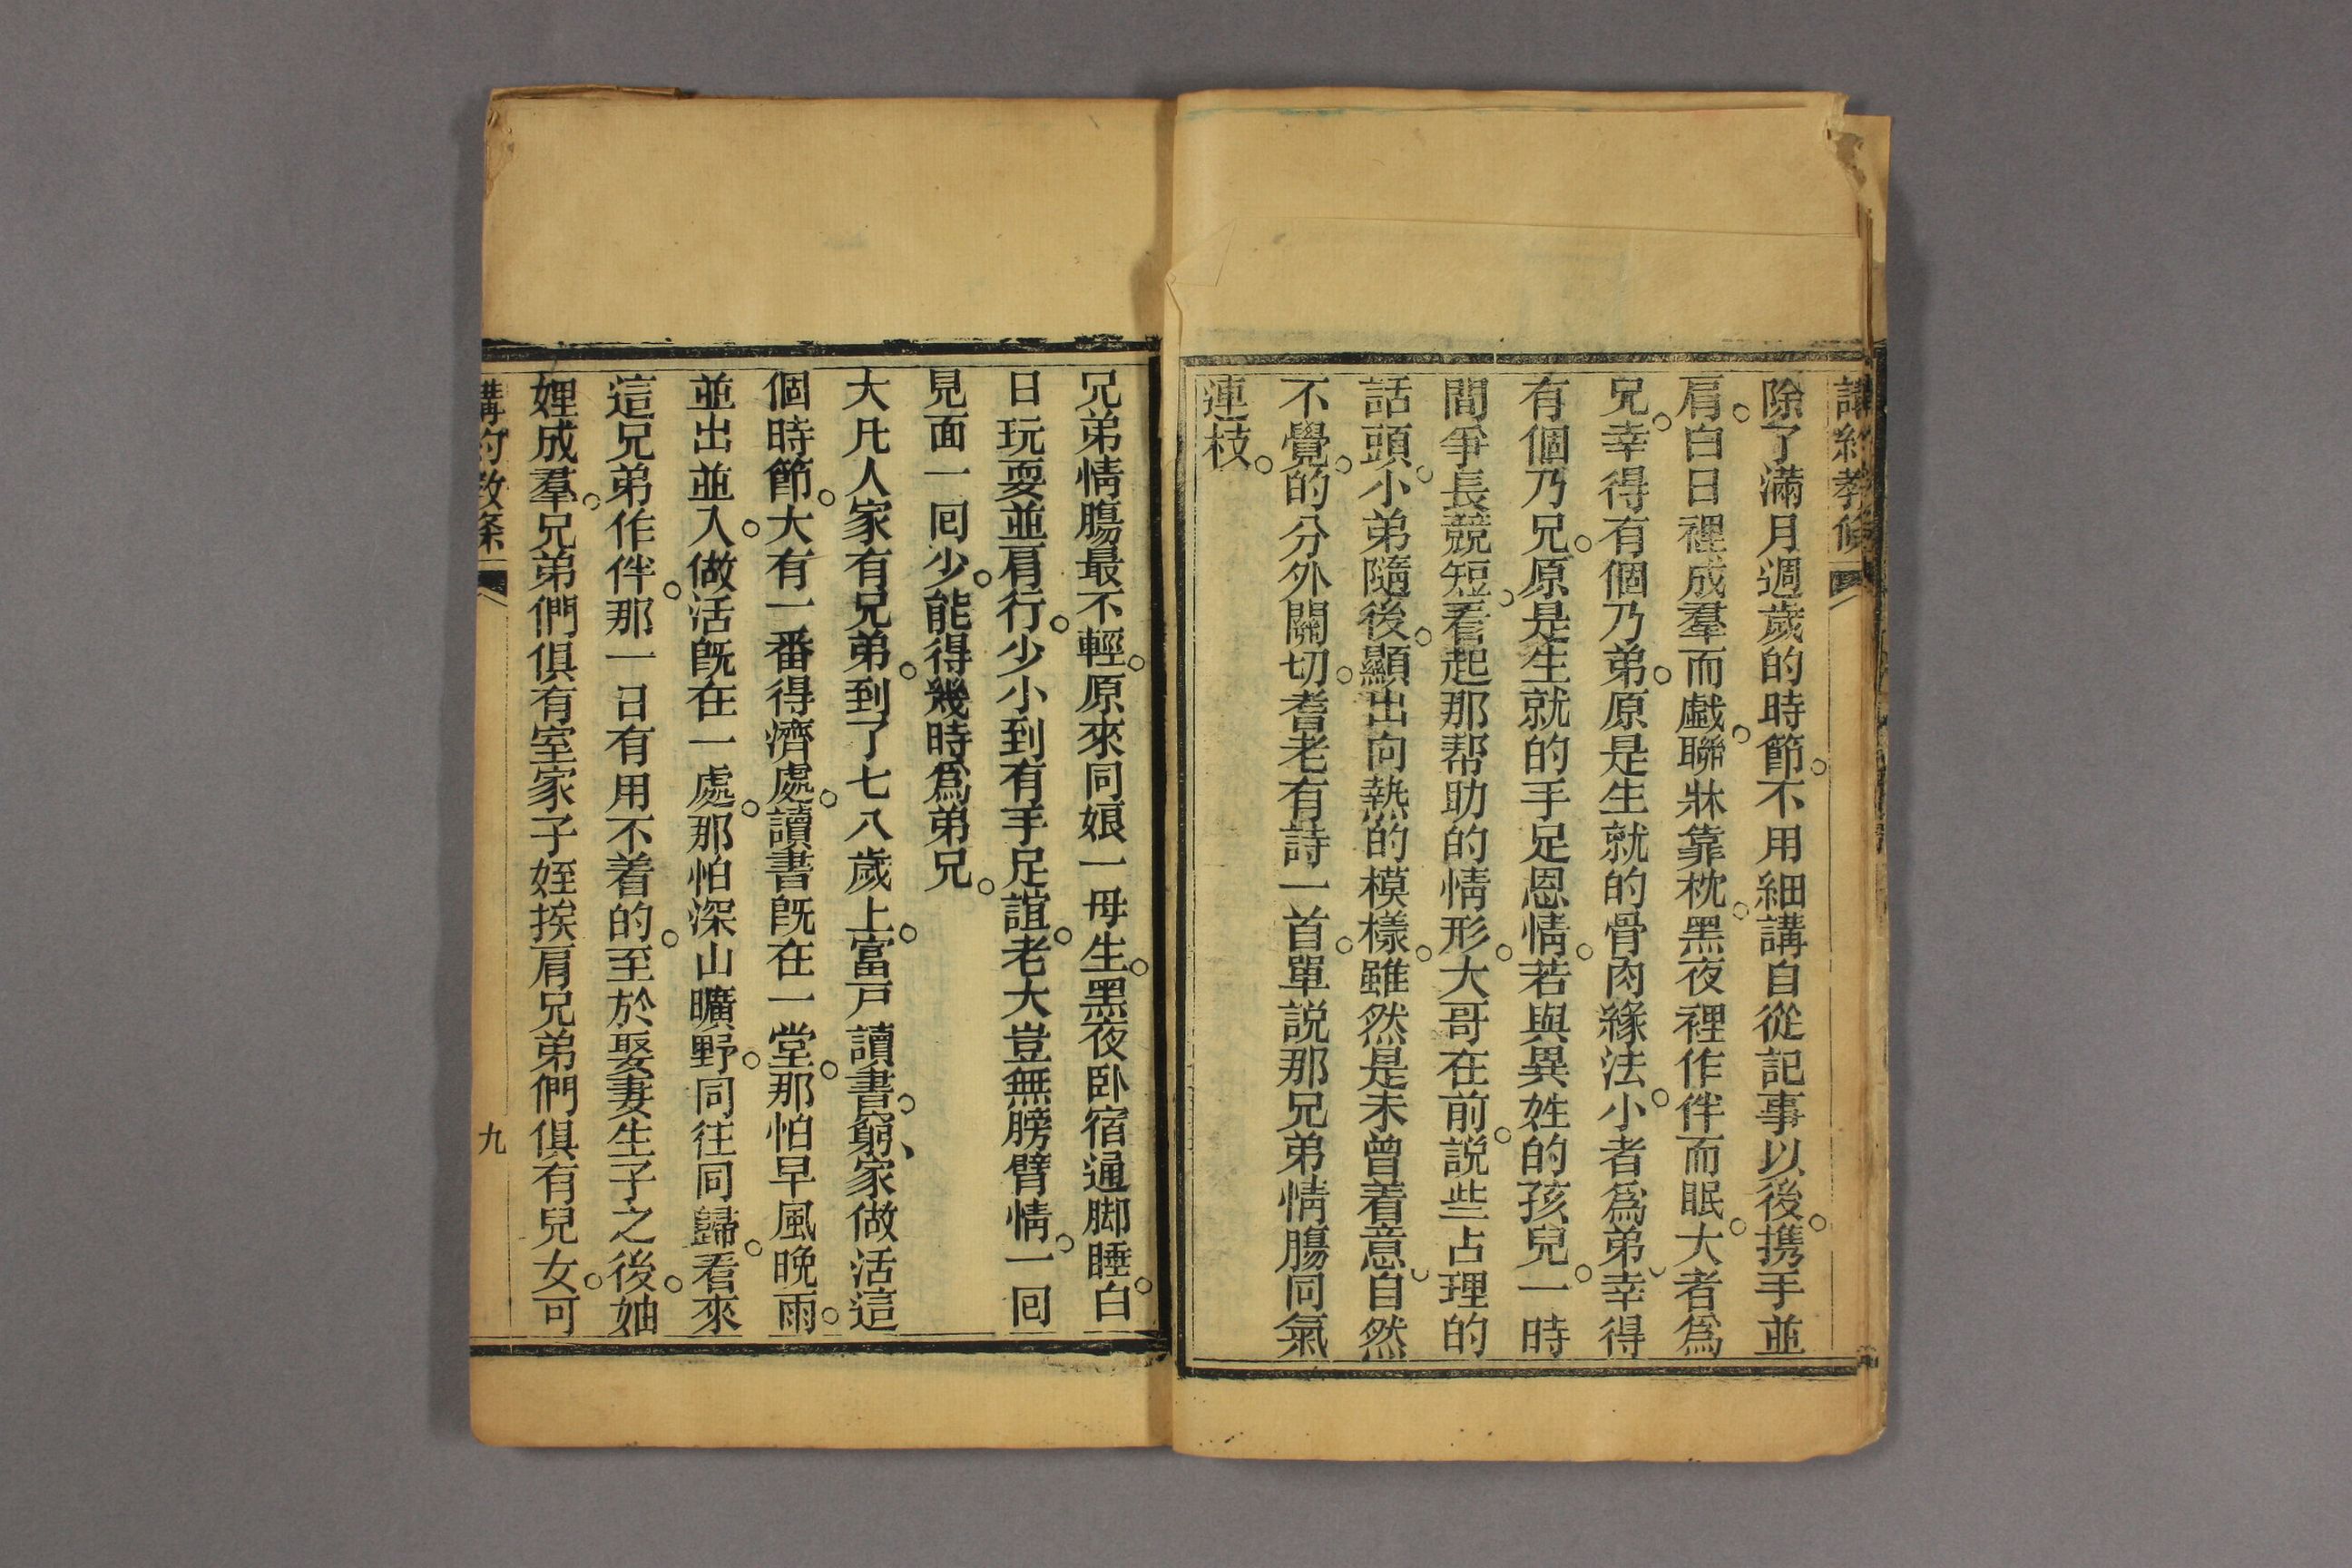 講約教條
除了滿月週歲的時節。不用細講自從記事以後。携手並
肩。白日裡成羣而戱。聯牀靠枕。黑夜裡作伴而眠。大者爲
兄。幸得有個乃弟。原是生就的骨肉緣法。小者爲弟。幸得
有個乃兄。原是生就的手足恩情。若與異姓的孩兒。一時
間爭長競短。看起那帮助的情形。大哥在前。説些占理的
話頭。小弟隨後。顯出向熱的模樣。雖然是未曾着意。自然
不覺。的分外關切。耆老有詩一首。單説那兄弟情腸同氣
連枝。
兄弟情腸最不輕。原來同娘一母生。黑夜卧宿通脚睡。白
日玩耍並肩行。少小到有手足誼。老大豈無膀臂情。一囘
見面一囘少。能得幾時爲弟兄。
大凡人家有兄弟。到了七八歲上。富戸讀書。窮、家做活這
個時節。大有一番得濟處。讀書旣在一堂。那怕早風晚雨。
並出並入。做活旣在一處。那怕深山曠野。同往同歸。看來
這兄弟作伴。那一日有用不着的。至於娶妻生子之後。妯
娌成羣。兄弟們俱有室家子姪挨肩兄弟們俱有兒女。可
講約教條
九